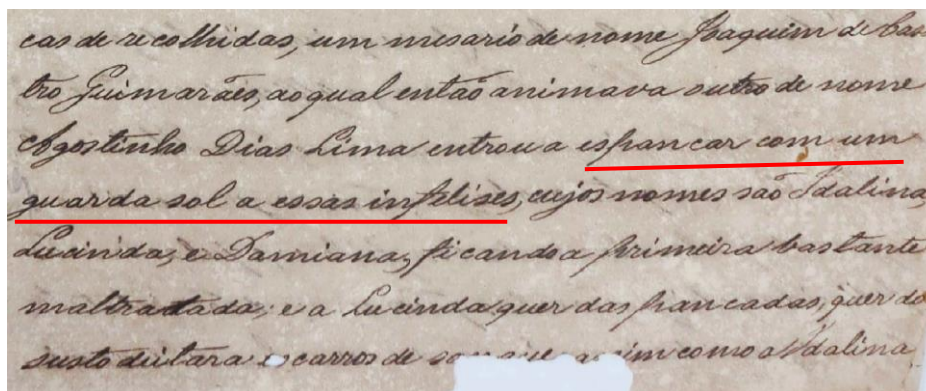 cas de recolhidas, um mesario de nome Joaquim de Cas
tro Guimarães, ao qual então animava outro de nome
Agostinho Dias Lima entrou a espancar com um
guarda sol a essas infelises, cujos nomes são Idalina,
Lucinda, e Damiana, ficando a primeira bastante
maltratada; e a Lucinda quer das pancadas, quer do
susto deitára escarros de sangue, assim como a Idalina,